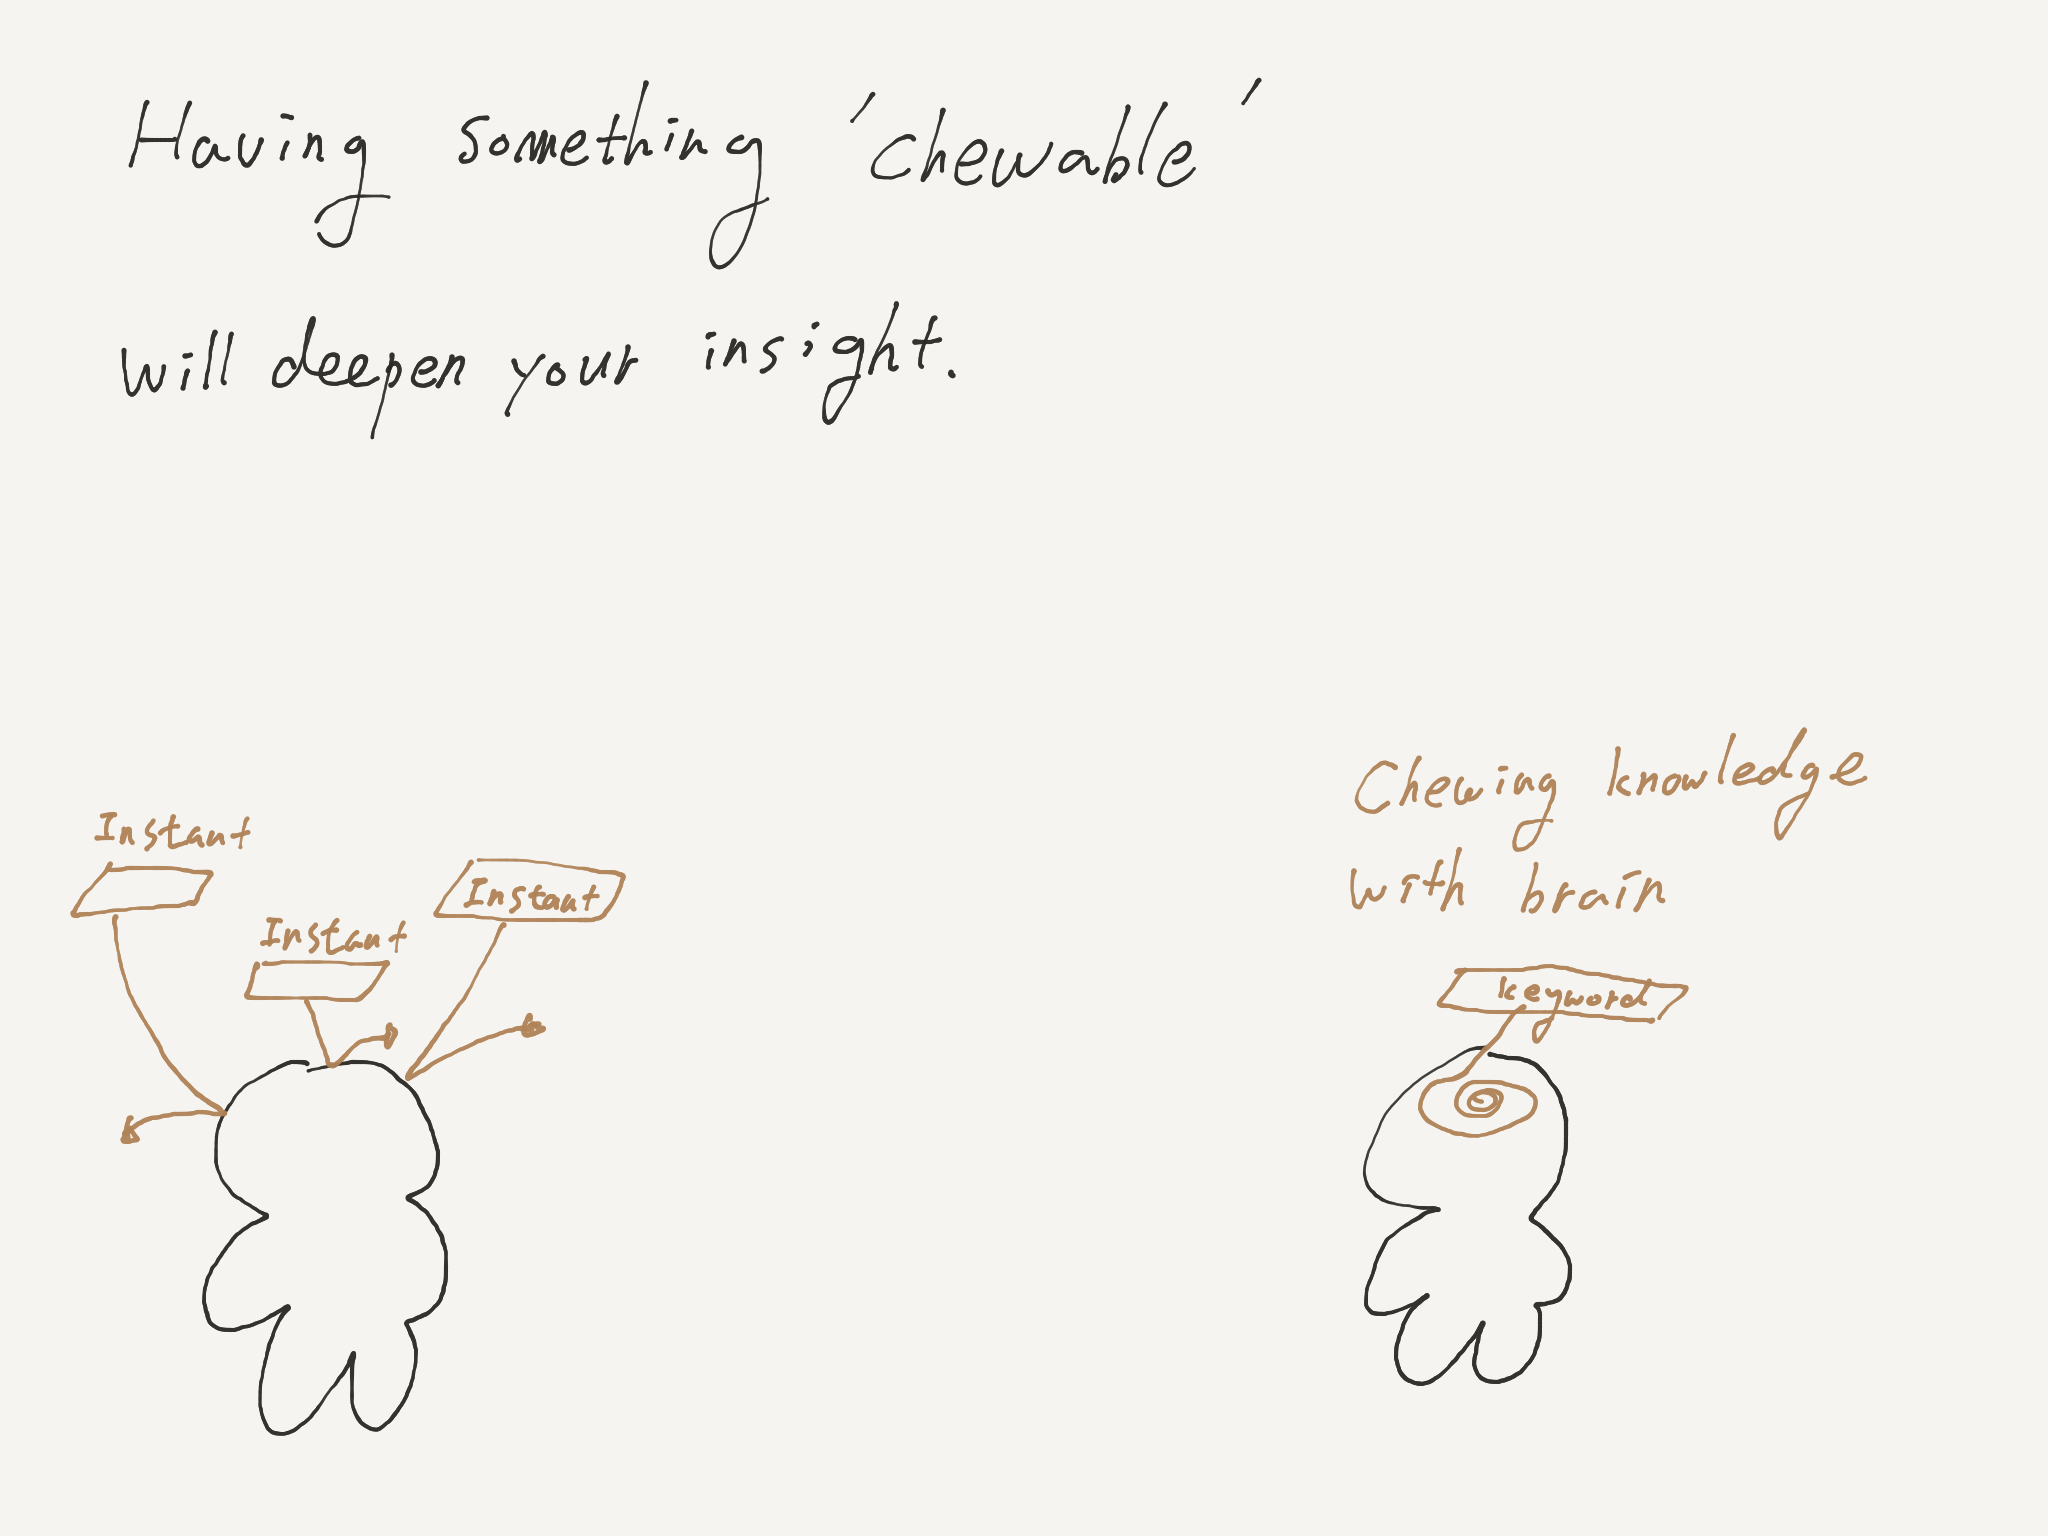 Having something 'chewable'
will deepen your insight.
Instant
Instant
Instant
Chewing knowledge
with brain
keyword